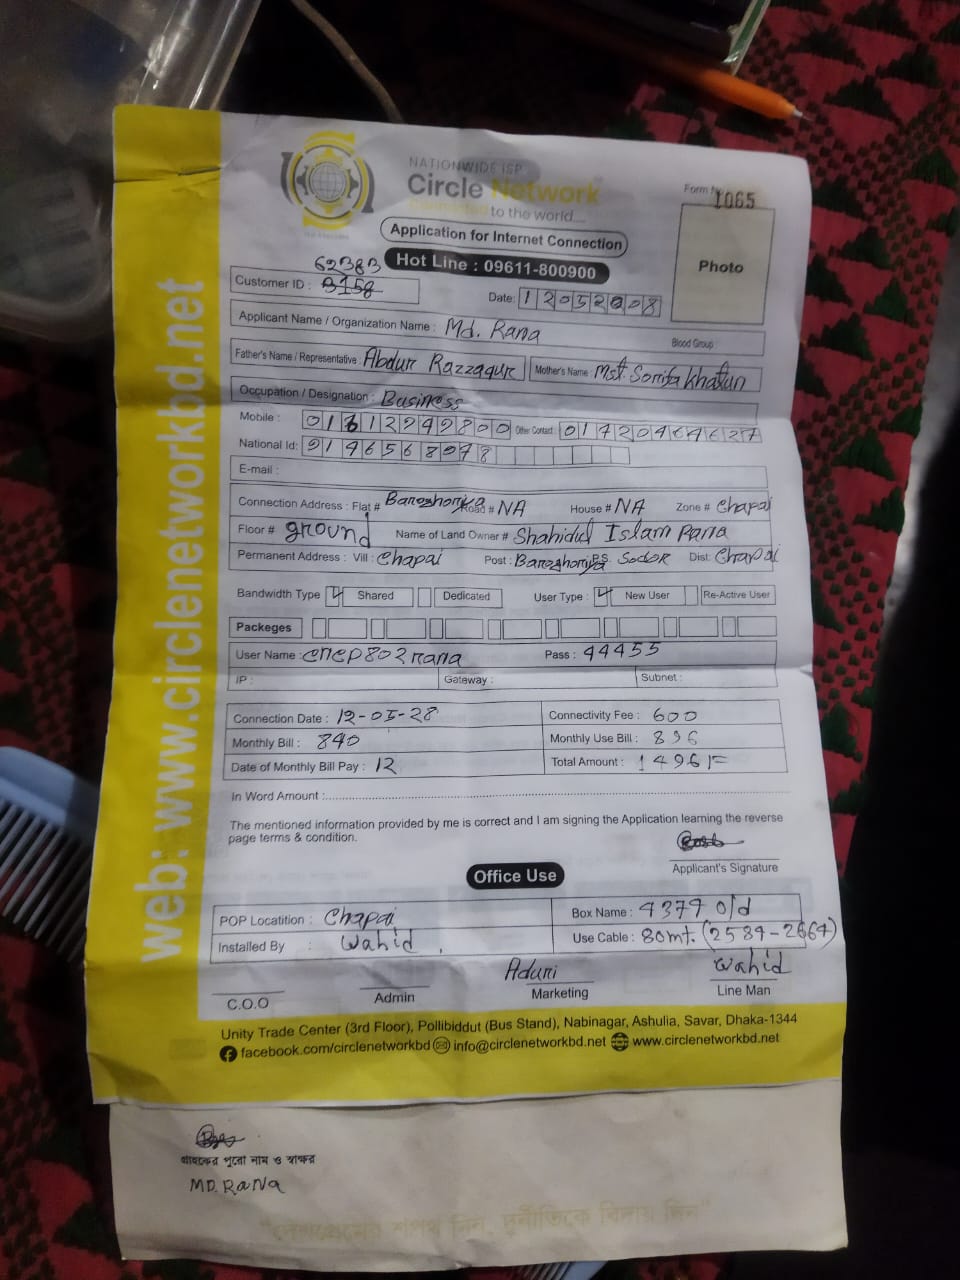 NATIONWIDE ISP
Circle Network
Connected to the world....
Form No
1065
Application for Internet Connection
Hot Line : 09611-800900
Photo
62383
Customer ID :
Date: 12052008
Applicant Name / Organization Name : Md. Rana
Blood Group :
Father's Name / Representative : Abdur Razzaqur Mother's Name : Mst. Sorifa Khatun
Occupation / Designation : Business
Mobile : 01312949800 Other Contact 01720464627
National Id: 9196568078
E-mail :
Connection Address : Flat # Baroghoriya Road # NA House # NA Zone # Chapai
Floor # ground Name of Land Owner # Shahidul Islam Rana
Permanent Address : Vill : Chapai Post : Baroghoriya P.S Sodor Dist: Chapai
Bandwidth Type Shared Dedicated User Type : New User Re-Active User
Packeges
User Name : cncp802rana Pass : 44455
IP : Gateway : Subnet :
Connection Date : 12-05-28 Connectivity Fee : 600
Monthly Bill : 840 Monthly Use Bill : 896
Date of Monthly Bill Pay : 12 Total Amount : 1496/=
In Word Amount :
The mentioned information provided by me is correct and I am signing the Application learning the reverse
page terms & condition.
Applicant's Signature
Office Use
POP Locatition : Chapai Box Name : 4379 old
Installed By : Wahid Use Cable : 80mt. (2584-2664)
Aduri Wahid
C.O.O Admin Marketing Line Man
Unity Trade Center (3rd Floor), Pollibiddut (Bus Stand), Nabinagar, Ashulia, Savar, Dhaka-1344
facebook.com/circlenetworkbd info@circlenetworkbd.net www.circlenetworkbd.net
web: www.circlenetworkbd.net
গ্রাহকের পুরো নাম ও স্বাক্ষর
MD. RaNa
"দেশপ্রেমের শপথ নিন, দুর্নীতিকে বিদায় দিন"